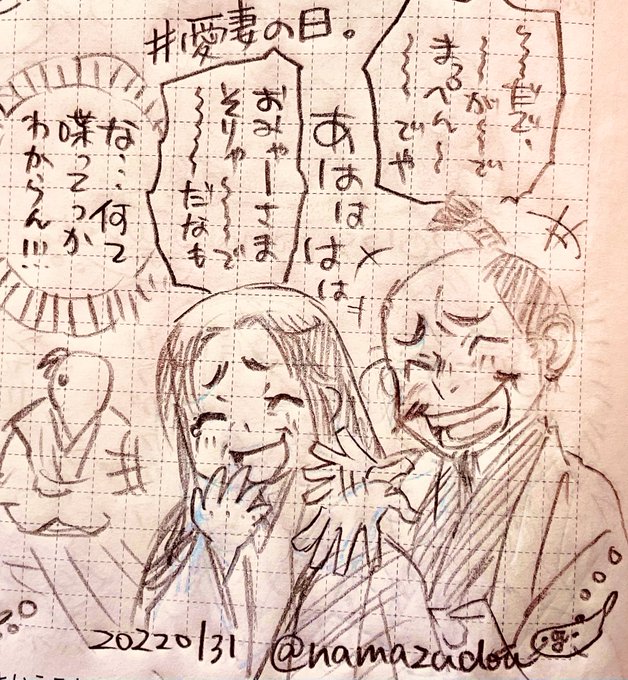 #愛妻の日。
〜〜だで、
〜〜が〜で
まっぺん〜
〜〜でや
あはははは
おみゃーさま
そりゃ〜〜で
〜〜〜だなも
な…何て
喋ってっか
わからん!!!
20220131
@namazudou